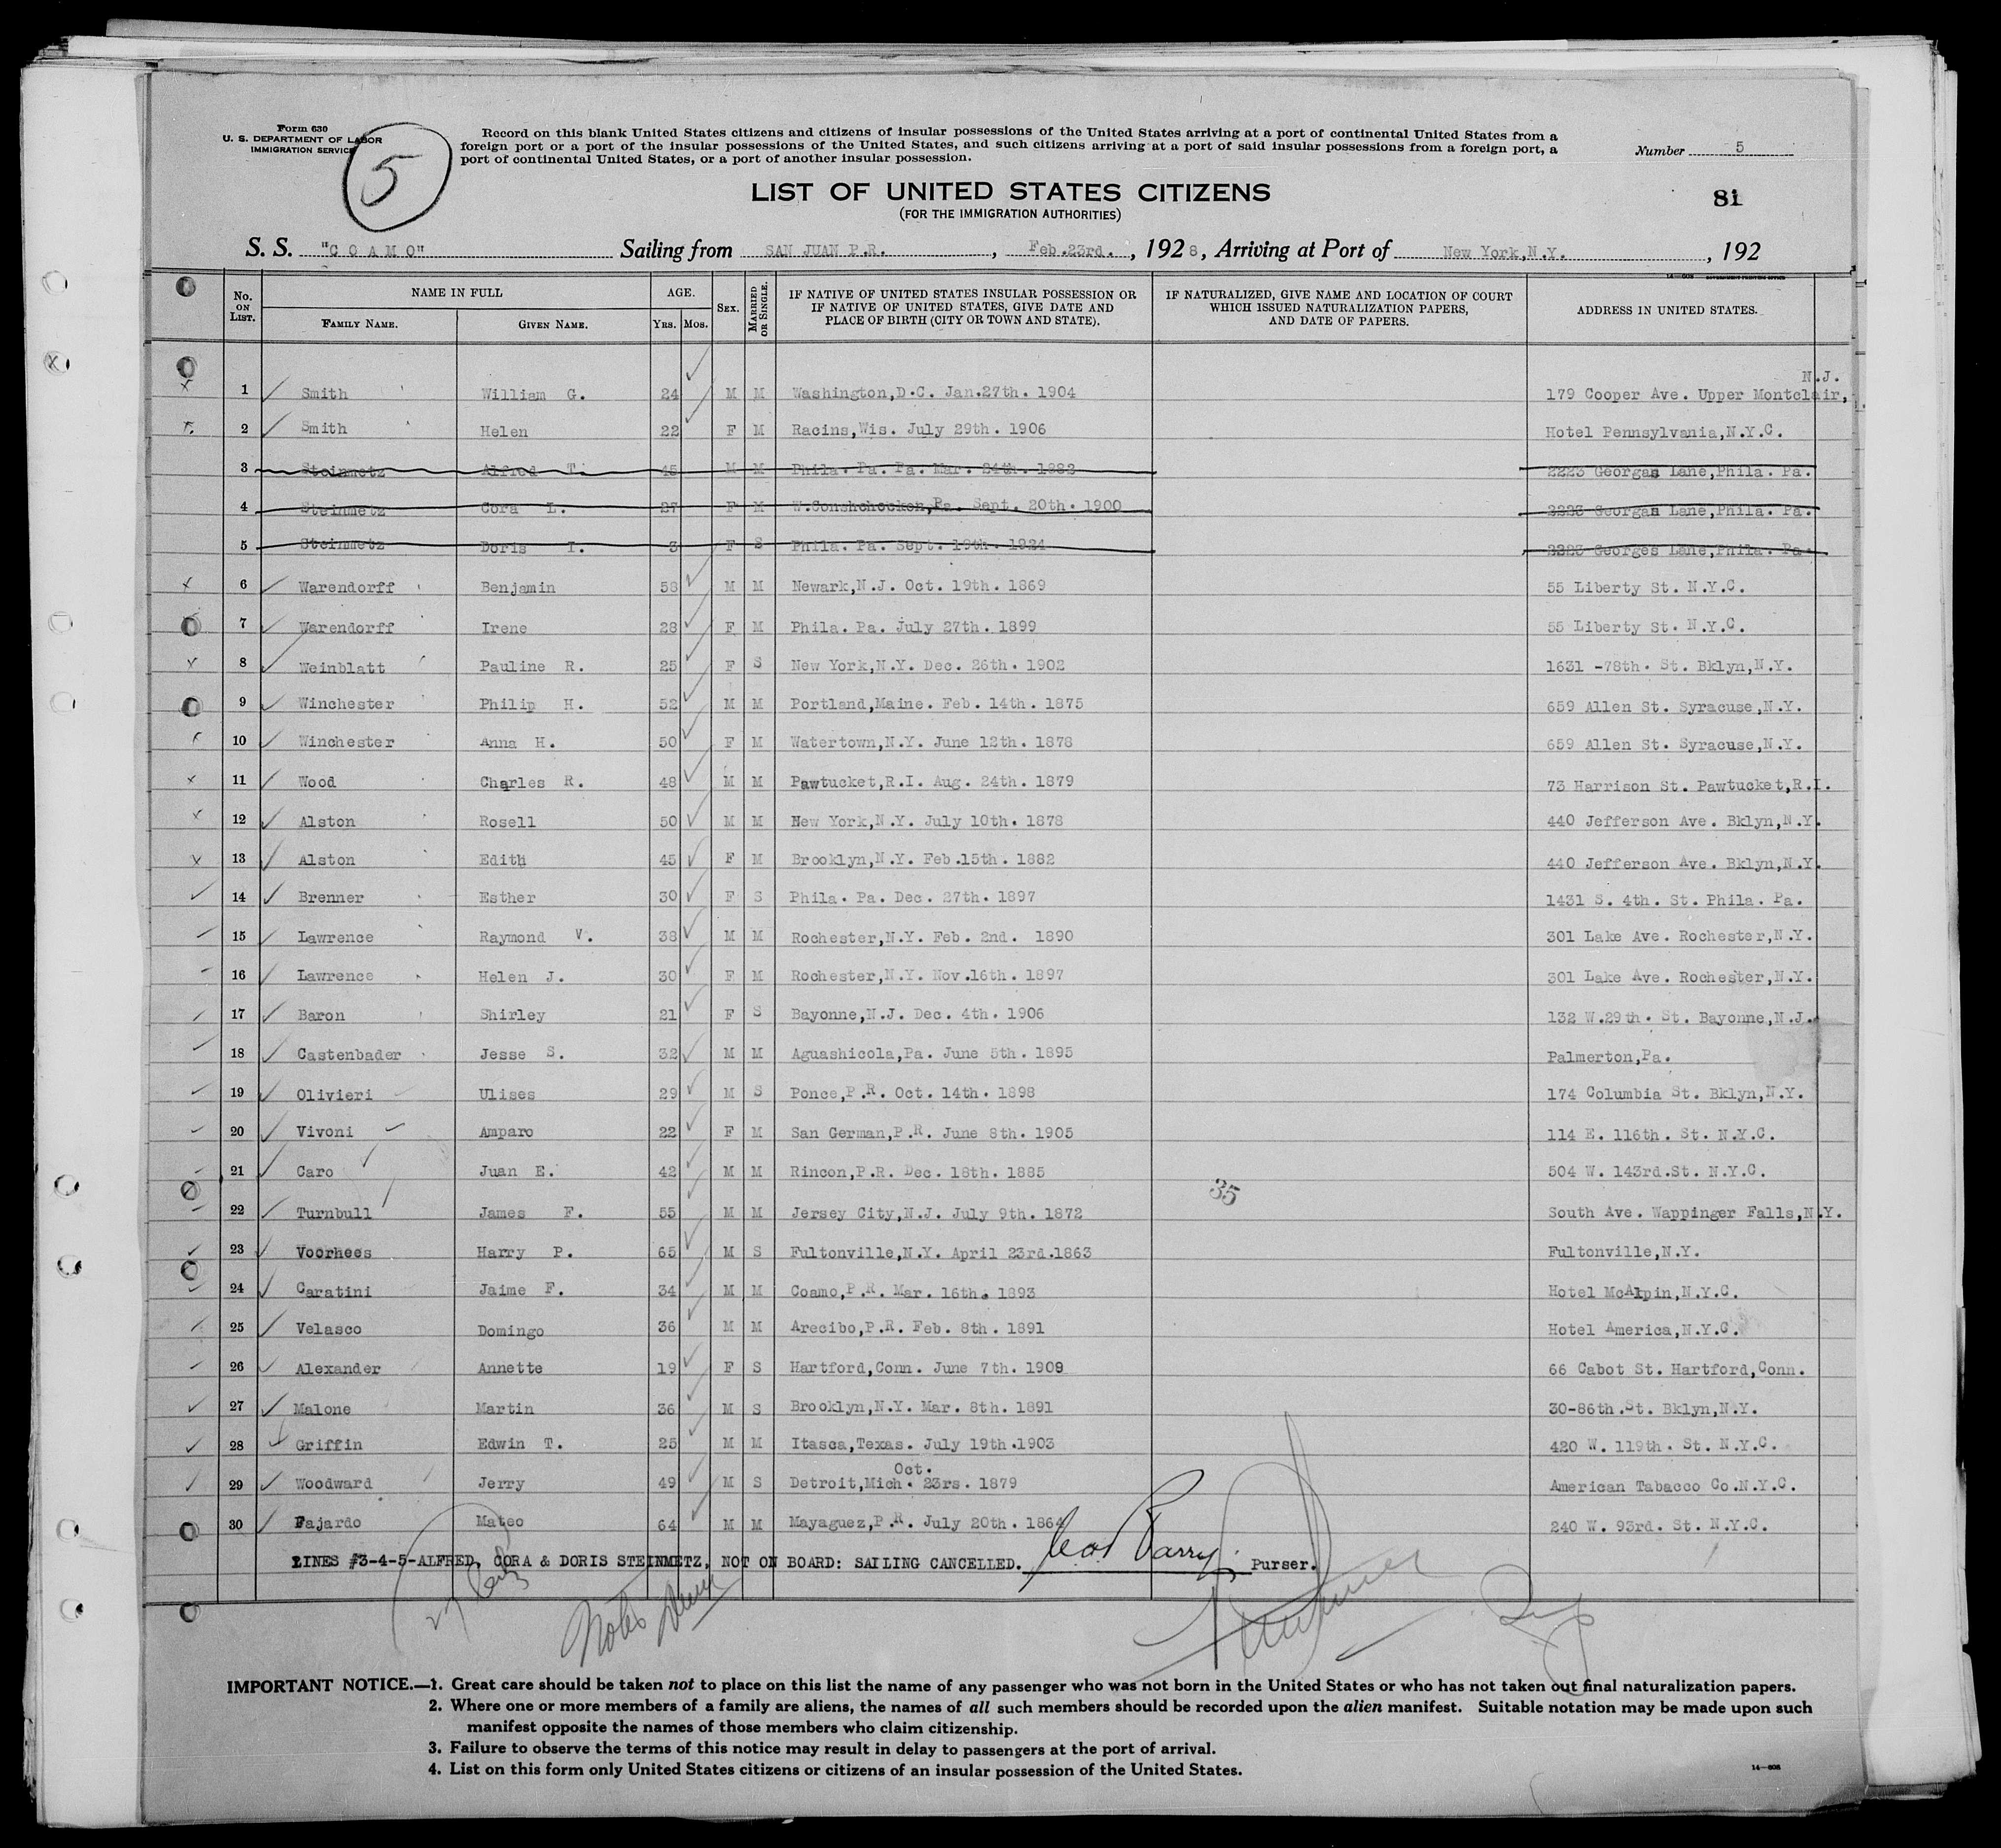 Form 630
U. S. DEPARTMENT OF LABOR
IMMIGRATION SERVICE
5
Record on this blank United States citizens and citizens of insular possessions of the United States arriving at a port of continental United States from a
foreign port or a port of the insular possessions of the United States, and such citizens arriving at a port of said insular possessions from a foreign port, a
port of continental United States, or a port of another insular possession.
Number 5
LIST OF UNITED STATES CITIZENS
(FOR THE IMMIGRATION AUTHORITIES)
81
S. S. "C O A M O" Sailing from SAN JUAN P.R. , Feb.23rd. , 1928, Arriving at Port of New York,N.Y. , 192
14—608 GOVERNMENT PRINTING OFFICE
No. ON LIST. NAME IN FULL AGE. SEX. MARRIED OR SINGLE. IF NATIVE OF UNITED STATES INSULAR POSSESSION OR IF NATIVE OF UNITED STATES, GIVE DATE AND PLACE OF BIRTH (CITY OR TOWN AND STATE). IF NATURALIZED, GIVE NAME AND LOCATION OF COURT WHICH ISSUED NATURALIZATION PAPERS, AND DATE OF PAPERS. ADDRESS IN UNITED STATES.
FAMILY NAME. GIVEN NAME. YRS. MOS.
N.J.
1 Smith William G. 24 M M Washington,D.C. Jan.27th. 1904 179 Cooper Ave. Upper Montclair,
2 Smith Helen 22 F M Racins,Wis. July 29th. 1906 Hotel Pennsylvania,N.Y.C.
3 Steinmetz Alfred T. 45 M M Phila. Pa. Pa. Mar. 24th. 1882 2223 Georgan Lane,Phila. Pa.
4 Steinmetz Cora L. 27 F M W.Conshchocken,Pa. Sept. 20th. 1900 2223 Georgan Lane,Phila. Pa.
5 Steinmetz Doris I. 3 F S Phila. Pa. Sept. 19th. 1924 2223 Georges Lane,Phila. Pa.
6 Warendorff Benjamin 58 M M Newark,N.J. Oct. 19th. 1869 55 Liberty St. N.Y.C.
7 Warendorff Irene 28 F M Phila. Pa. July 27th. 1899 55 Liberty St. N.Y.C.
8 Weinblatt Pauline R. 25 F S New York,N.Y. Dec. 26th. 1902 1631 -78th. St. Bklyn,N.Y.
9 Winchester Philip H. 52 M M Portland,Maine. Feb. 14th. 1875 659 Allen St. Syracuse,N.Y.
10 Winchester Anna H. 50 F M Watertown,N.Y. June 12th. 1878 659 Allen St. Syracuse,N.Y.
11 Wood Charles R. 48 M M Pawtucket,R.I. Aug. 24th. 1879 73 Harrison St. Pawtucket,R.I.
12 Alston Rosell 50 M M New York,N.Y. July 10th. 1878 440 Jefferson Ave. Bklyn,N.Y.
13 Alston Edith 45 F M Brooklyn,N.Y. Feb.15th. 1882 440 Jefferson Ave. Bklyn,N.Y.
14 Brenner Esther 30 F S Phila. Pa. Dec. 27th. 1897 1431 S. 4th. St. Phila. Pa.
15 Lawrence Raymond V. 38 M M Rochester,N.Y. Feb. 2nd. 1890 301 Lake Ave. Rochester,N.Y.
16 Lawrence Helen J. 30 F M Rochester,N.Y. Nov.16th. 1897 301 Lake Ave. Rochester,N.Y.
17 Baron Shirley 21 F S Bayonne,N.J. Dec. 4th. 1906 132 W.29th. St. Bayonne,N.J.
18 Castenbader Jesse S. 32 M M Aguashicola,Pa. June 5th. 1895 Palmerton,Pa.
19 Olivieri Ulises 29 M S Ponce,P.R. Oct. 14th. 1898 174 Columbia St. Bklyn,N.Y.
20 Vivoni Amparo 22 F M San German,P.R. June 8th. 1905 114 E. 116th. St. N.Y.C.
21 Caro Juan E. 42 M M Rincon,P.R. Dec. 18th. 1885 504 W. 143rd.St. N.Y.C.
35
22 Turnbull James F. 55 M M Jersey City,N.J. July 9th. 1872 South Ave. Wappinger Falls,N.Y.
23 Voorhees Harry P. 65 M S Fultonville,N.Y. April 23rd.1863 Fultonville,N.Y.
24 Caratini Jaime F. 34 M M Coamo,P.R. Mar. 16th. 1893 Hotel McAlpin,N.Y.C.
25 Velasco Domingo 36 M M Arecibo,P.R. Feb. 8th. 1891 Hotel America,N.Y.C.
26 Alexander Annette 19 F S Hartford,Conn. June 7th. 1909 66 Cabot St. Hartford,Conn.
27 Malone Martin 36 M S Brooklyn,N.Y. Mar. 8th. 1891 30-86th.St. Bklyn,N.Y.
28 Griffin Edwin T. 25 M M Itasca,Texas. July 19th.1903 420 W. 119th. St. N.Y.C.
Oct.
29 Woodward Jerry 49 M S Detroit,Mich. 23rs. 1879 American Tabacco Co.N.Y.C.
30 Fajardo Mateo 64 M M Mayaguez,P.R. July 20th. 1864 240 W. 93rd. St. N.Y.C.
LINES #3-4-5-ALFRED, CORA & DORIS STEINMETZ, NOT ON BOARD: SAILING CANCELLED. Barry, Purser.
27
IMPORTANT NOTICE.—1. Great care should be taken not to place on this list the name of any passenger who was not born in the United States or who has not taken out final naturalization papers.
2. Where one or more members of a family are aliens, the names of all such members should be recorded upon the alien manifest. Suitable notation may be made upon such
manifest opposite the names of those members who claim citizenship.
3. Failure to observe the terms of this notice may result in delay to passengers at the port of arrival.
4. List on this form only United States citizens or citizens of an insular possession of the United States.
14—608